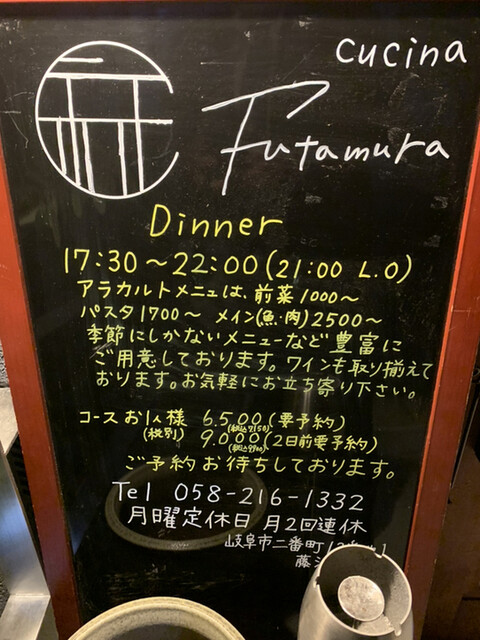 cucina
Futamura
Dinner
17:30～22:00(21:00 L.O)
アラカルトメニューは、前菜1000～
パスタ1700～ メイン(魚・肉)2500～
季節にしかないメニューなど豊富に
ご用意しております。ワインも取り揃えて
おります。お気軽にお立ち寄り下さい。
コースお1人様 6,500(要予約)
(税別) (税込7150)
9,000(2日前要予約)
(税込9900)
ご予約お待ちしております。
Tel 058-216-1332
月曜定休日 月2回連休
岐阜市二番町
藤